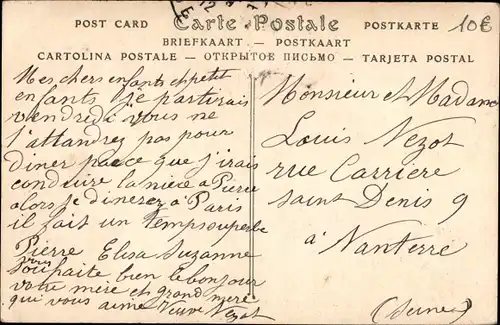 POST CARD Carte Postale POSTKARTE 10€
BRIEFKAART — POSTKAART
CARTOLINA POSTALE — ОТКРЫТОЕ ПИСЬМО — TARJETA POSTAL
Mes chers enfants et petit
enfants je partirais
vendredi vous ne
l'attandrez pas pour
diner parce que j'irais
conduire la niece a Pierre
alors je dinerez à Paris
il fait un temps superbe
Pierre Elisa Suzanne
vous
souhaite bien le bonjour
votre mère et grand mere
qui vous aime Veuve Nezot
Monsieur et Madame
Louis Nezot
rue Carriere
saint Denis 9
à Nanterre
(Seine)